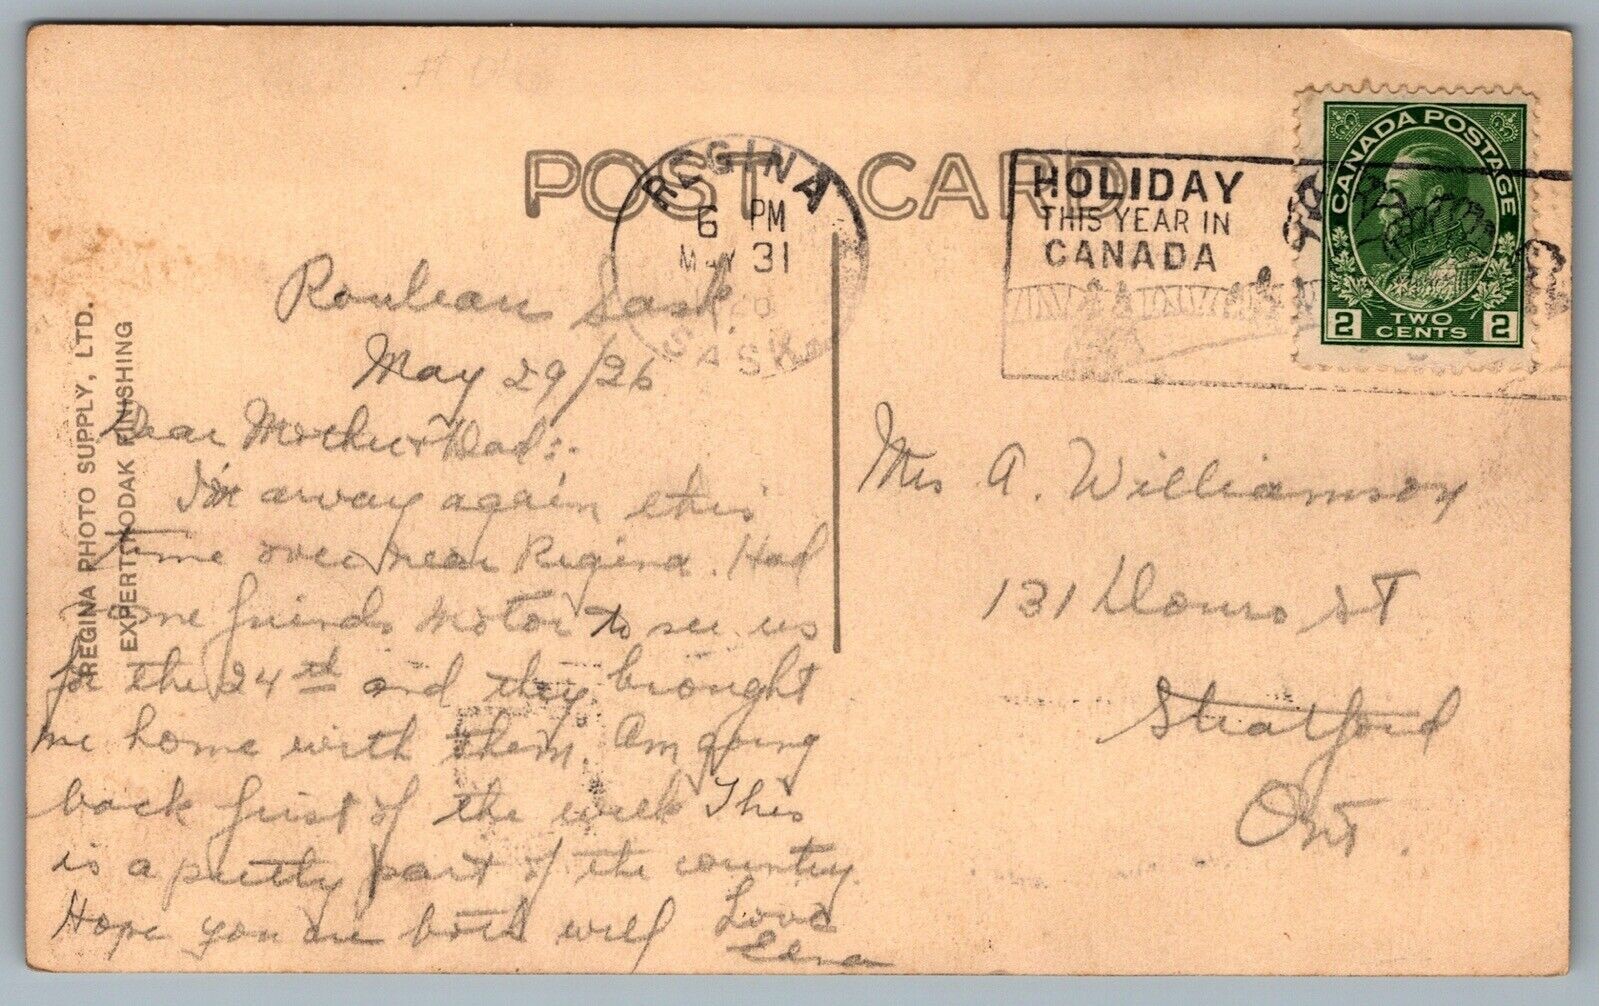 POST CARD
REGINA
6 PM
MAY 31
26
SASK.
HOLIDAY
THIS YEAR IN
CANADA
CANADA POSTAGE
2 TWO CENTS 2
REGINA PHOTO SUPPLY, LTD.
EXPERT KODAK FINISHING
Rouleau Sask.
May 29/26
Dear Mother & Dad:-
I'm away again this
time over near Regina. Had
some friends motor to see us
for the 24th and they brought
me home with them. Am going
back first of the week This
is a pretty part of the country.
Hope you are both well
Love
Edna
Mrs A. Williamson
131 Douro St
Stratford
Ont.